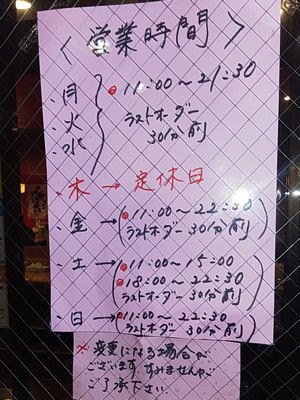 〈営業時間〉
・月
・火
・水
11:00〜21:30
ラストオーダー
30分前
・木→定休日
・金→(11:00〜22:30
ラストオーダー 30分前)
・土→(11:00〜15:00
18:00〜22:30
ラストオーダー 30分前)
・日→(11:00〜22:30
ラストオーダー 30分前)
※変更になる場合が
ございます。すみませんが
ご了承下さい。